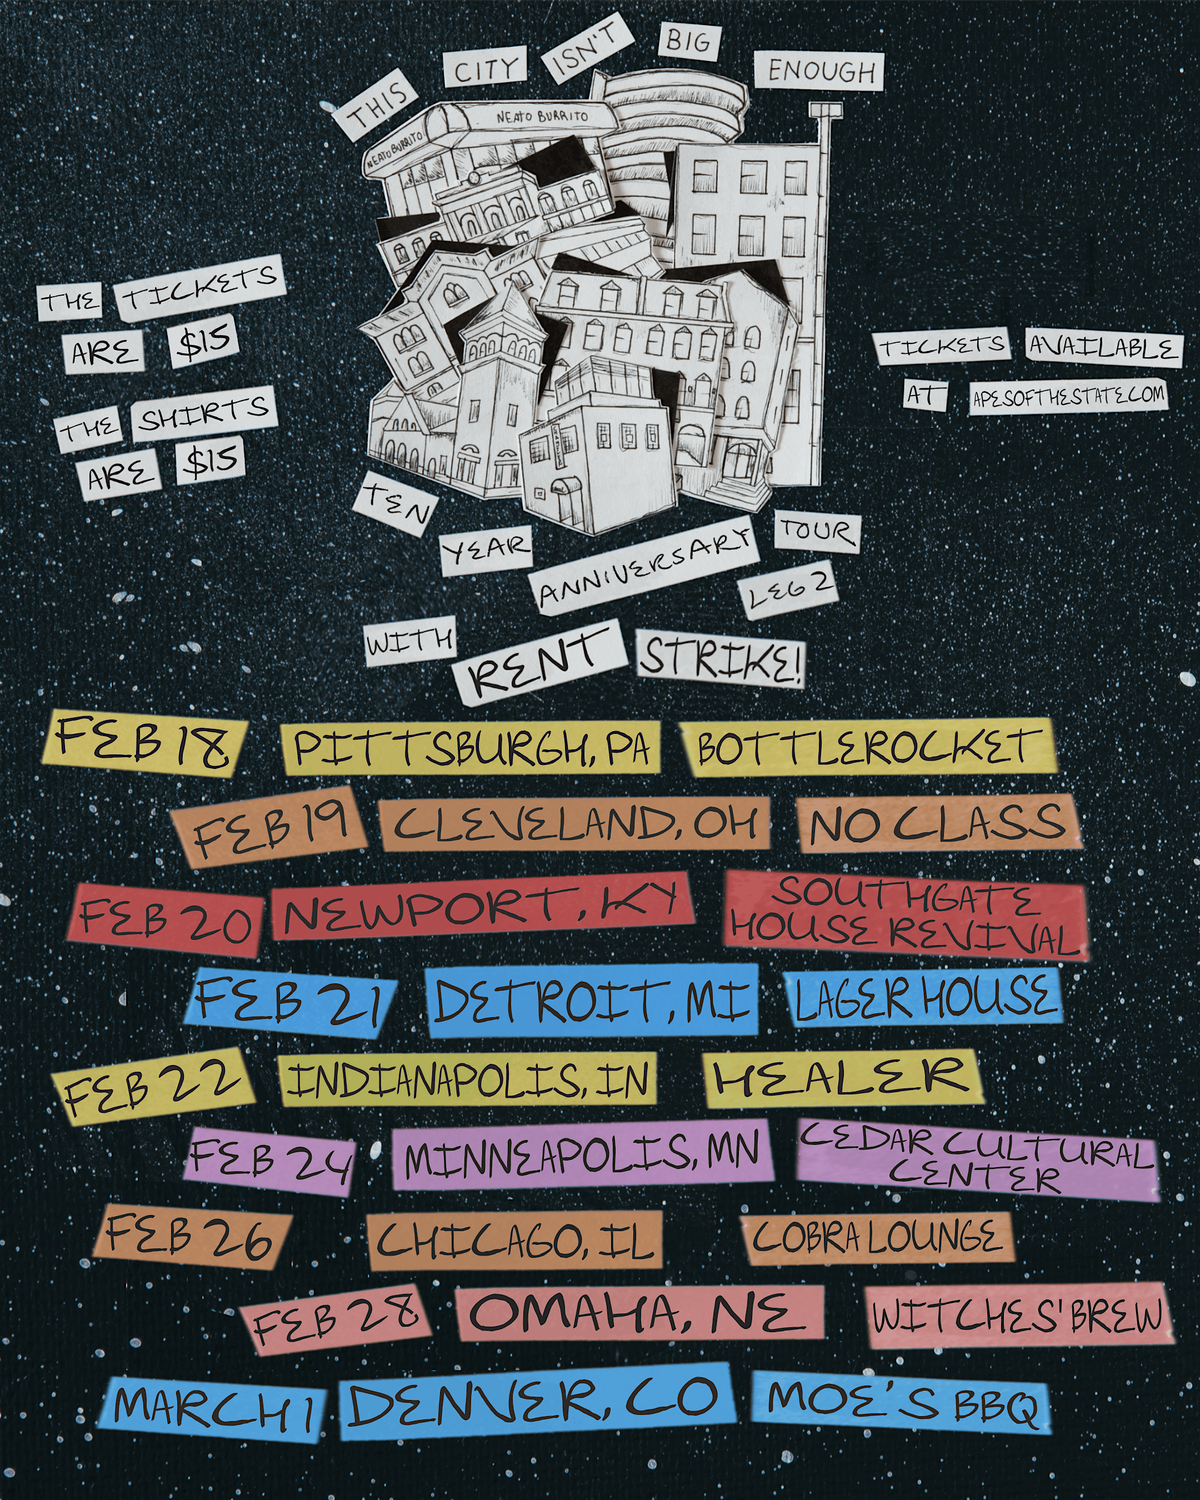 THIS CITY ISN'T BIG ENOUGH
NEATO BURRITO
NEATO BURRITO
THE TICKETS
ARE $15
THE SHIRTS
ARE $15
TICKETS AVAILABLE
AT APESOFTHESTATE.COM
TEN YEAR ANNIVERSARY TOUR
LEG 2
WITH RENT STRIKE!
FEB 18 PITTSBURGH, PA BOTTLEROCKET
FEB 19 CLEVELAND, OH NO CLASS
FEB 20 NEWPORT, KY SOUTHGATE
HOUSE REVIVAL
FEB 21 DETROIT, MI LAGER HOUSE
FEB 22 INDIANAPOLIS, IN HEALER
FEB 24 MINNEAPOLIS, MN CEDAR CULTURAL
CENTER
FEB 26 CHICAGO, IL COBRA LOUNGE
FEB 28 OMAHA, NE WITCHES' BREW
MARCH 1 DENVER, CO MOE'S BBQ